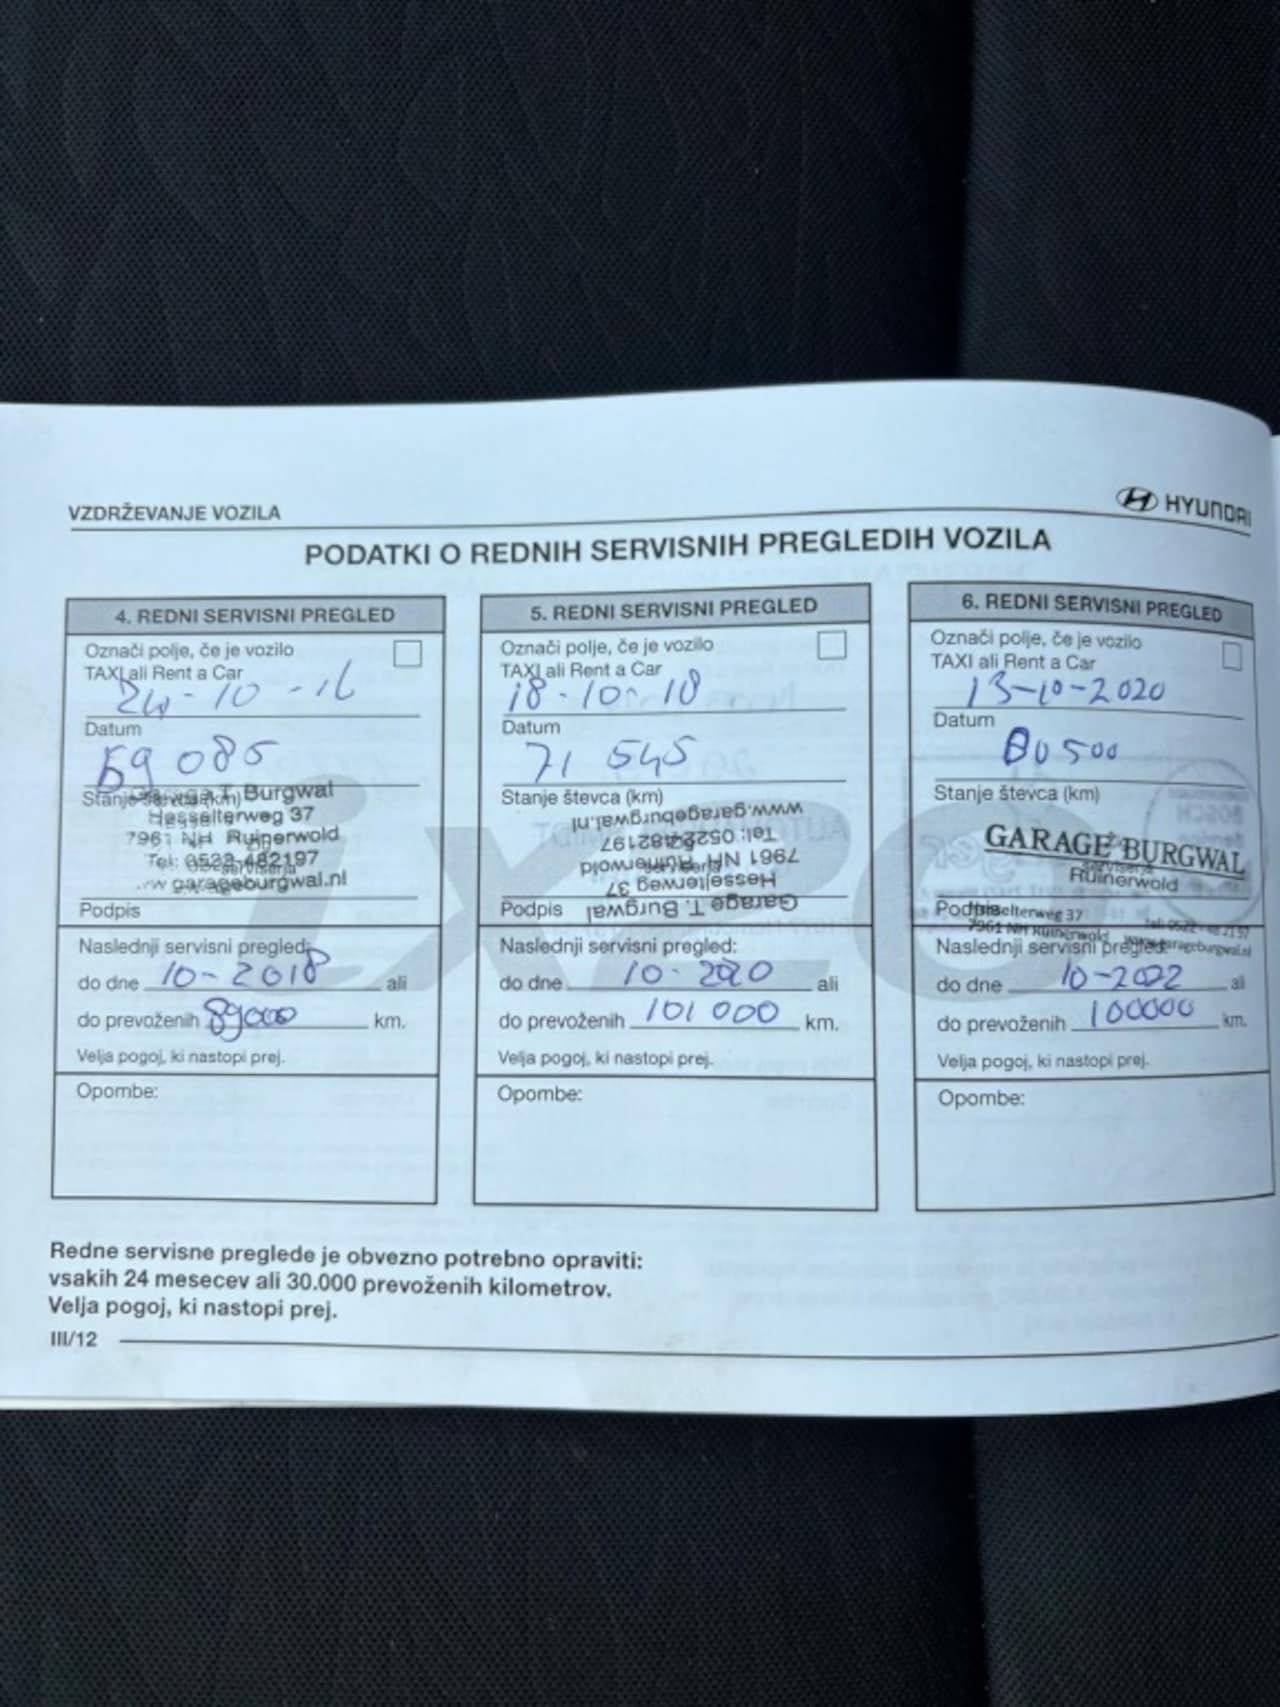 VZDRŽEVANJE VOZILA
HYUNDAI
PODATKI O REDNIH SERVISNIH PREGLEDIH VOZILA
4. REDNI SERVISNI PREGLED
Označi polje, če je vozilo
TAXI ali Rent a Car
24-10-16
Datum
59 085
Stanje števca (km)
Garage T. Burgwal
Hesselterweg 37
7961 NH Ruinerwold
Tel: 0522-482197
www.garageburgwal.nl
Podpis
Naslednji servisni pregled:
do dne 10-2018 ali
do prevoženih 89000 km.
Velja pogoj, ki nastopi prej.
Opombe:
5. REDNI SERVISNI PREGLED
Označi polje, če je vozilo
TAXI ali Rent a Car
18-10-18
Datum
71 545
Stanje števca (km)
Garage T. Burgwal
Hesselterweg 37
7961 NH Ruinerwold
Tel: 0522-482197
www.garageburgwal.nl
Podpis
Naslednji servisni pregled:
do dne 10-2020 ali
do prevoženih 101 000 km.
Velja pogoj, ki nastopi prej.
Opombe:
6. REDNI SERVISNI PREGLED
Označi polje, če je vozilo
TAXI ali Rent a Car
13-10-2020
Datum
80 500
Stanje števca (km)
GARAGE BURGWAL
Ruinerwold
Podpis
Hesselterweg 37
7961 NH Ruinerwold
tel: 0522 - 48 21 97
www.garageburgwal.nl
Naslednji servisni pregled:
do dne 10-2022 ali
do prevoženih 100000 km.
Velja pogoj, ki nastopi prej.
Opombe:
ix20
Redne servisne preglede je obvezno potrebno opraviti:
vsakih 24 mesecev ali 30.000 prevoženih kilometrov.
Velja pogoj, ki nastopi prej.
III/12